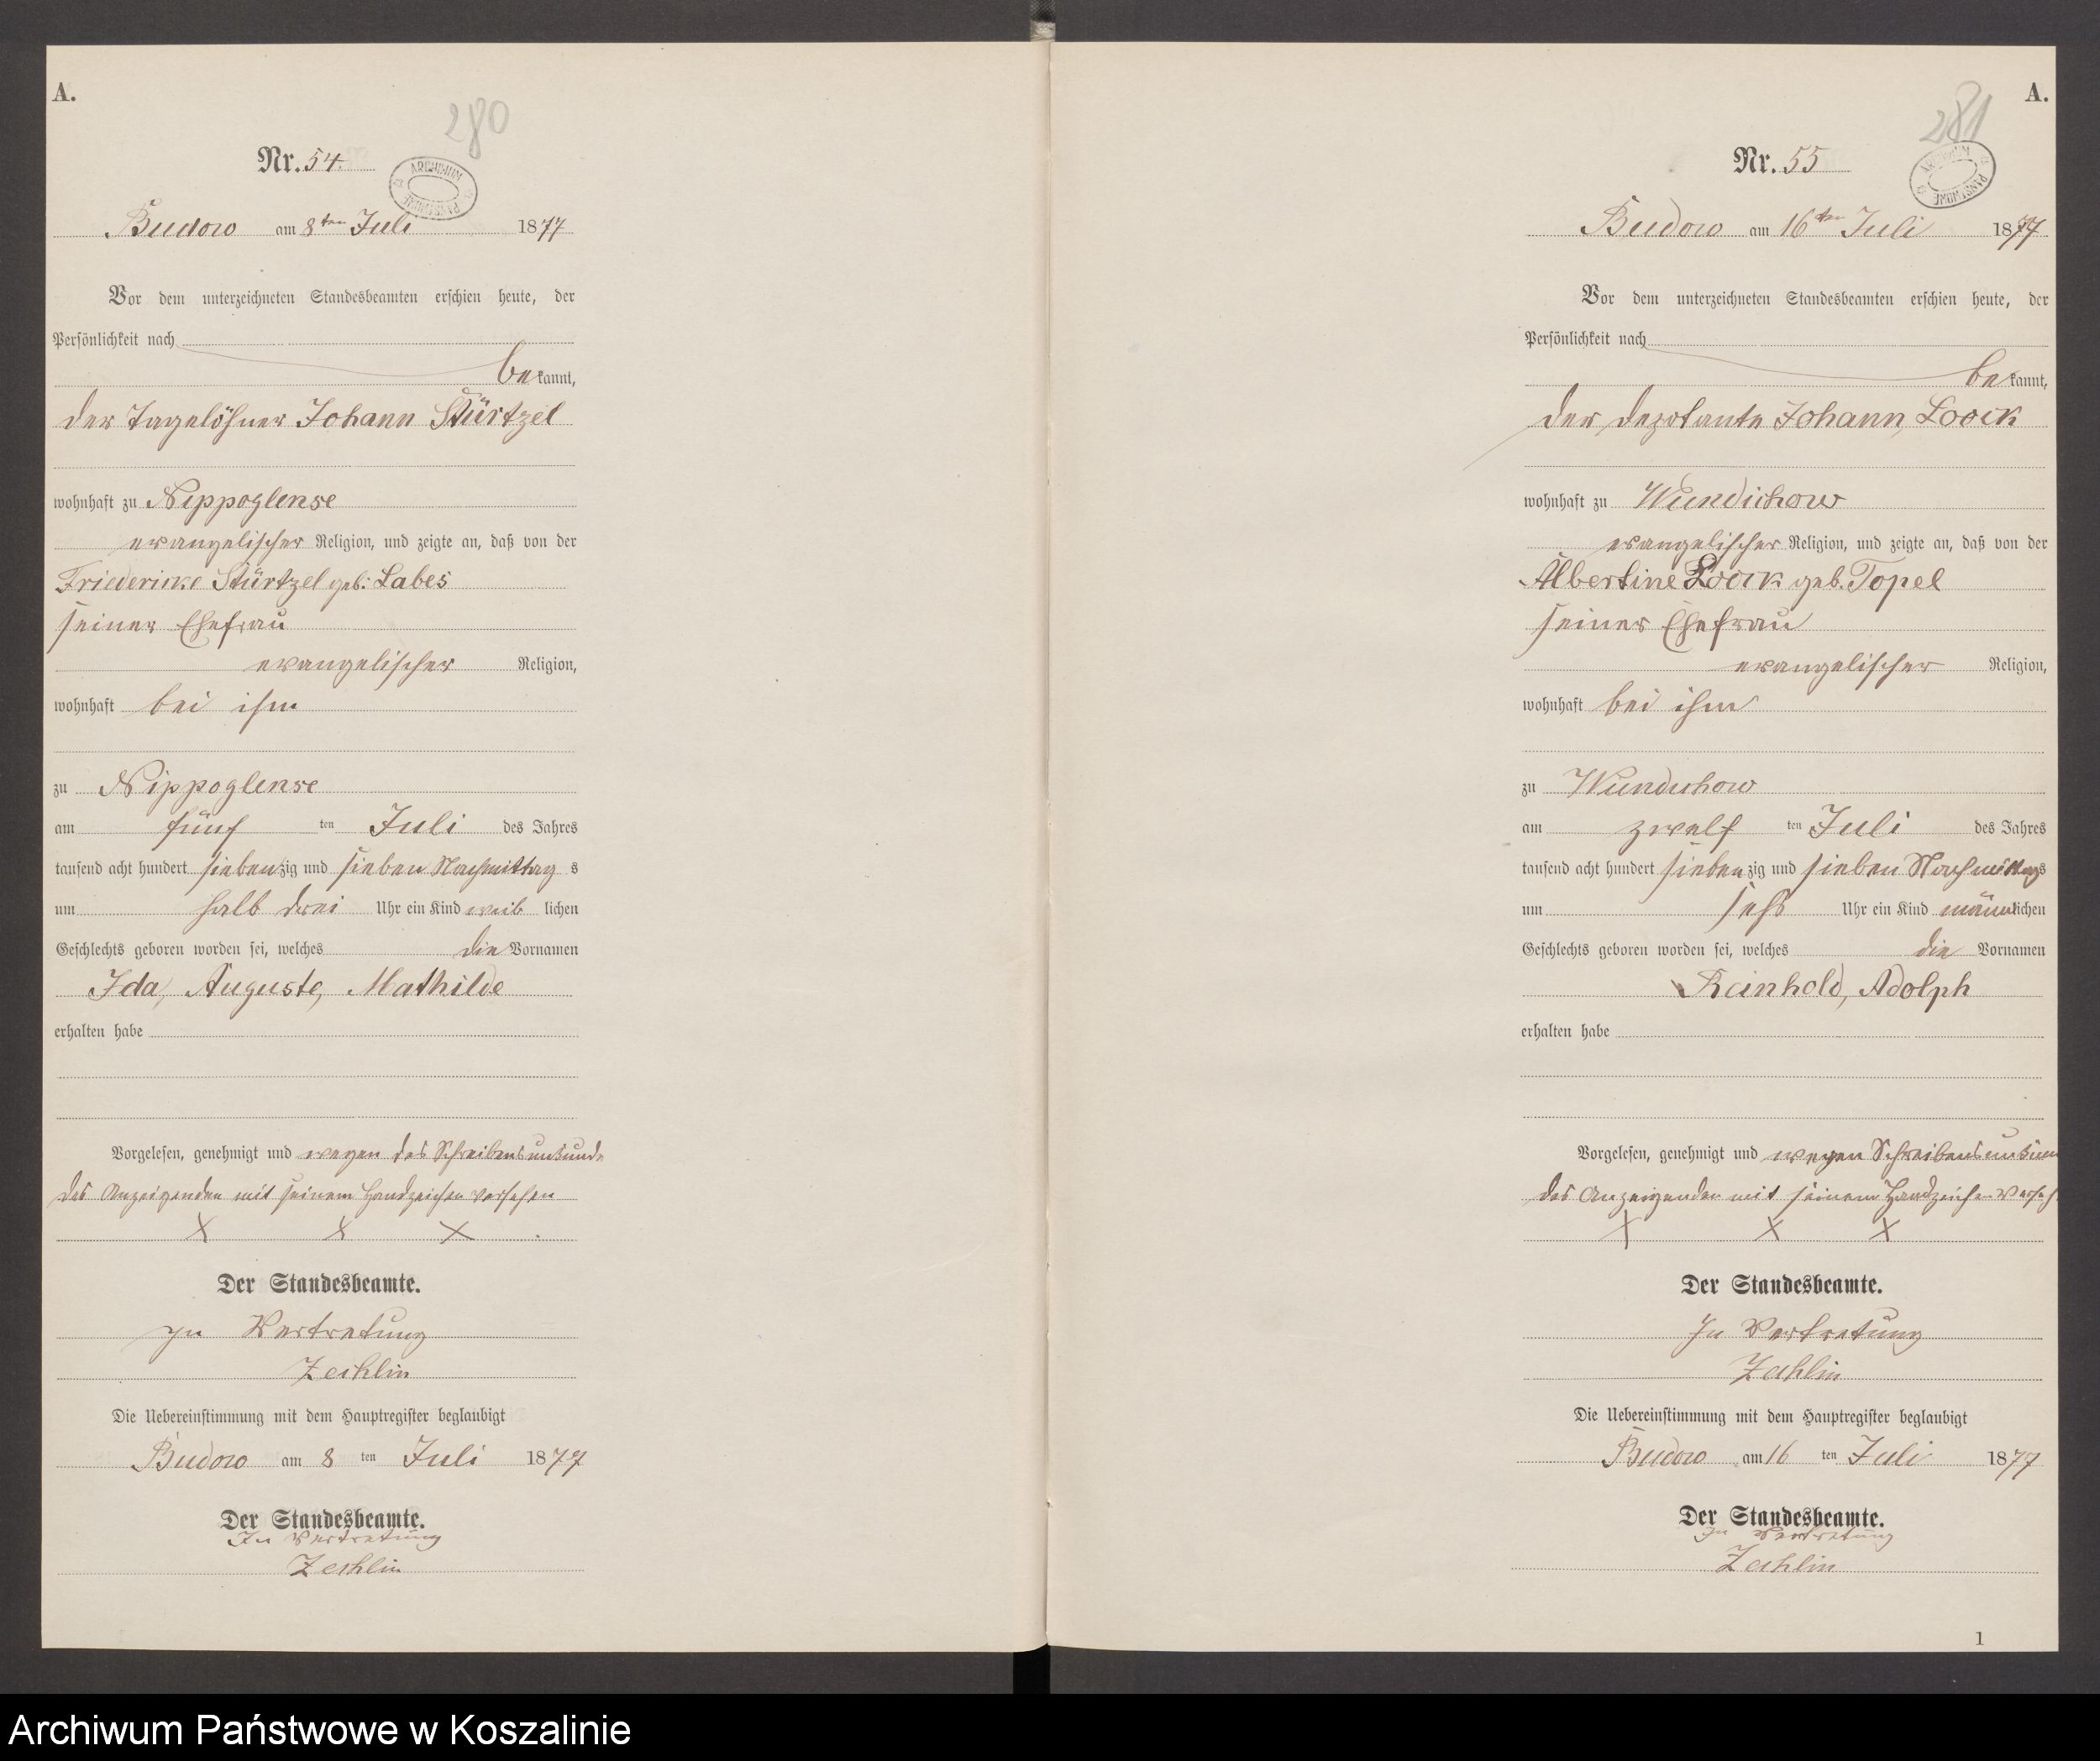 A.
280
Nr. 54.
ARCHIWUM PAŃSTWOWE
Budow am 8ten Juli 1877
Vor dem unterzeichneten Standesbeamten erschien heute, der
Persönlichkeit nach
bekannt,
der Tagelöhner Johann Stürtzel
wohnhaft zu Nippoglense
evangelischer Religion, und zeigte an, daß von der
Friedericke Stürtzel geb: Labes
seiner Ehefrau
evangelischer Religion,
wohnhaft bei ihm
zu Nippoglense
am fünf ten Juli des Jahres
tausend acht hundert siebenzig und sieben Nachmittag s
um halb drei Uhr ein Kind weib lichen
Geschlechts geboren worden sei, welches die Vornamen
Ida, Auguste, Mathilde
erhalten habe
Vorgelesen, genehmigt und wegen des Schreibensunkunde
des Anzeigenden mit seinem Handzeichen versehen
X X X
Der Standesbeamte.
In Vertretung
Zechlin
Die Uebereinstimmung mit dem Hauptregister beglaubigt
Budow am 8 ten Juli 1877
Der Standesbeamte.
In Vertretung
Zechlin
A.
281
Nr. 55
ARCHIWUM PAŃSTWOWE
Budow am 16ten Juli 1877
Vor dem unterzeichneten Standesbeamten erschien heute, der
Persönlichkeit nach
bekannt,
der Johann Loock
wohnhaft zu Wundichow
evangelischer Religion, und zeigte an, daß von der
Albertine Loock geb. Topel
seiner Ehefrau
evangelischer Religion,
wohnhaft bei ihm
zu Wundichow
am zwölf ten Juli des Jahres
tausend acht hundert siebenzig und sieben Nachmittags
um sechs Uhr ein Kind männlichen
Geschlechts geboren worden sei, welches die Vornamen
Reinhold, Adolph
erhalten habe
Vorgelesen, genehmigt und wegen Schreibensunkun
des Anzeigenden mit seinem Handzeichen verseh
X X X
Der Standesbeamte.
In Vertretung
Zechlin
Die Uebereinstimmung mit dem Hauptregister beglaubigt
Budow am 16 ten Juli 1877
Der Standesbeamte.
In Vertretung
Zechlin
1
Archiwum Państwowe w Koszalinie